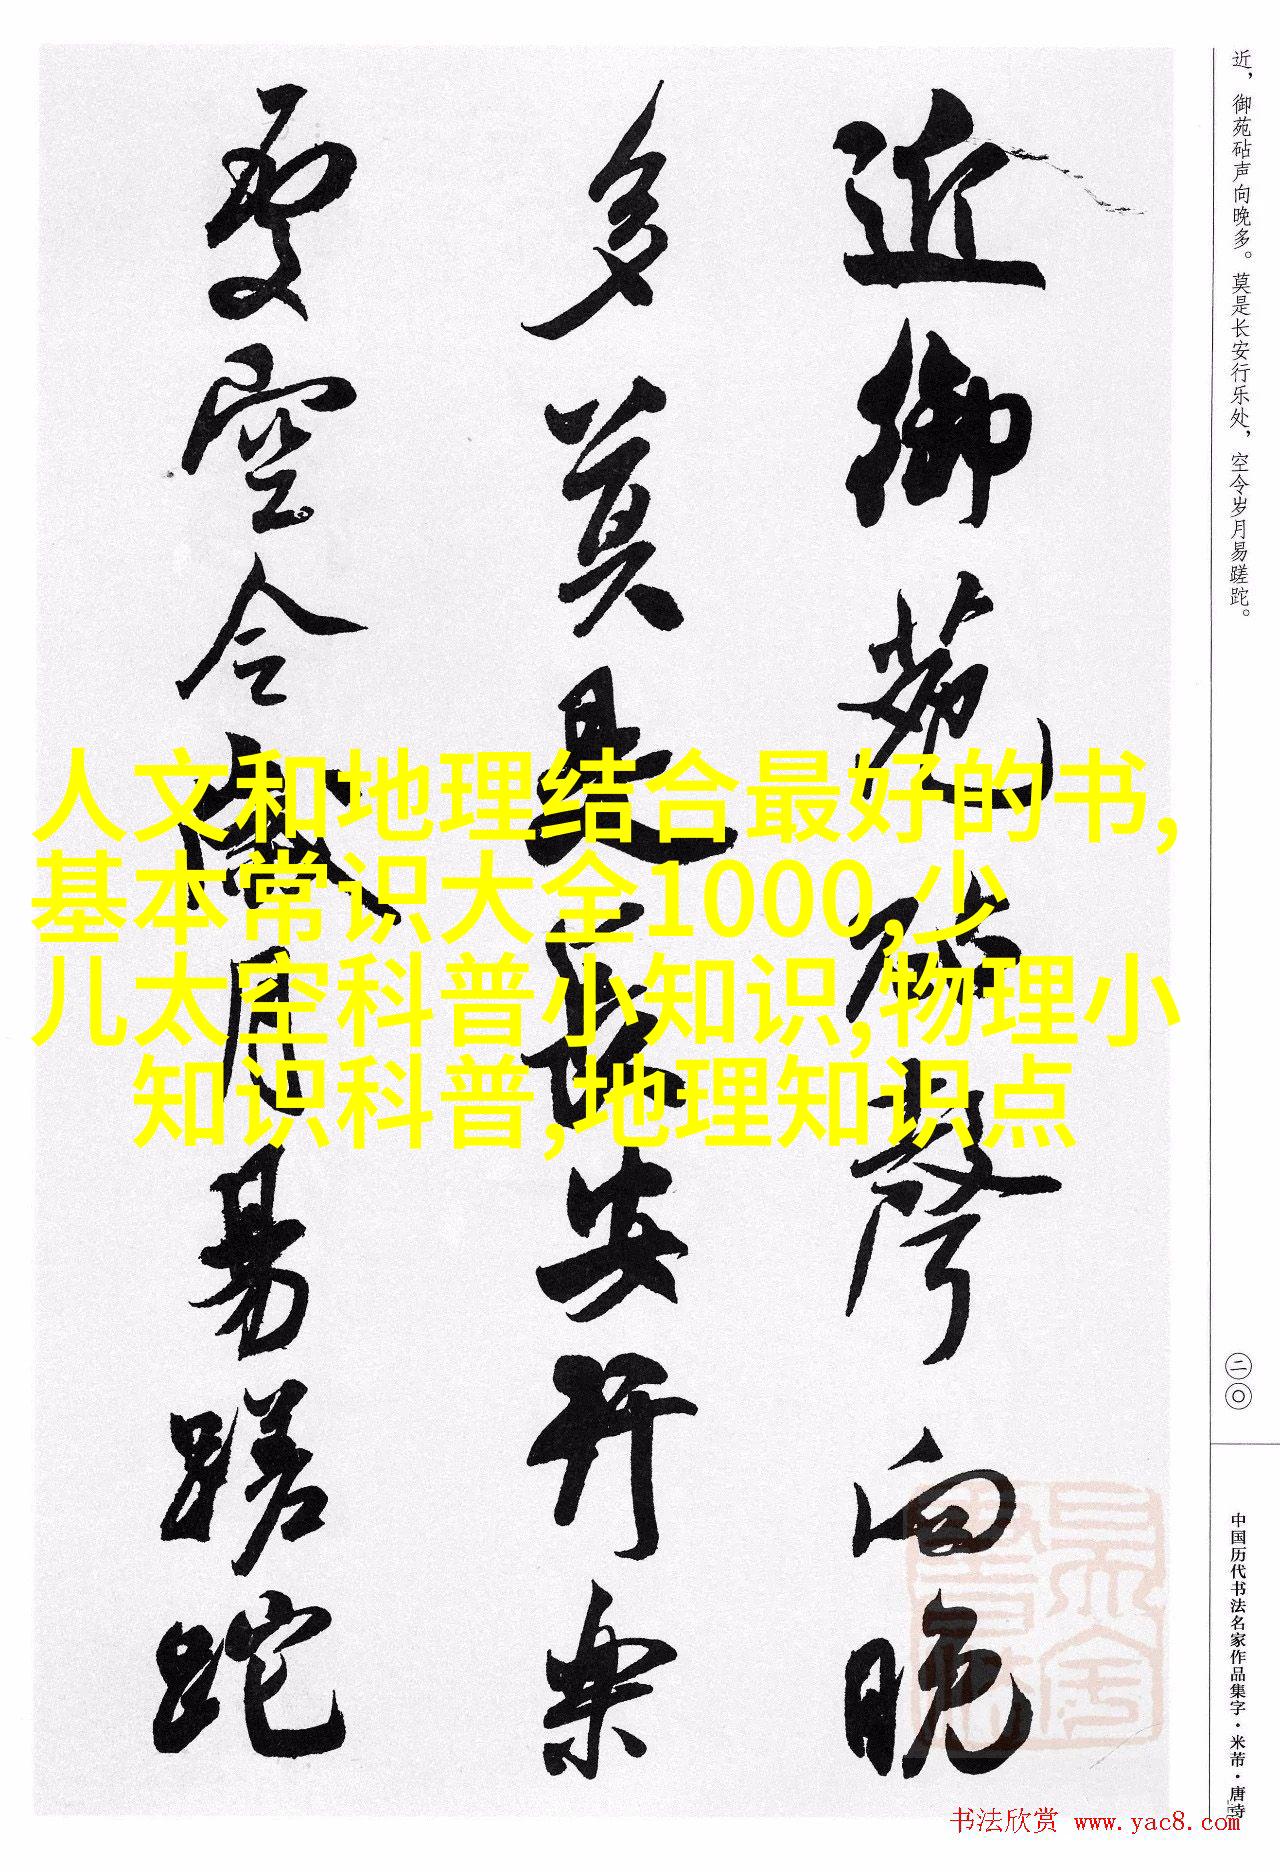 近，御苑砧声向晚多。莫是长安行乐处，空令岁月易蹉跎。
近御苑砧聲向晚
多莫是长安行樂
處空令歲月易蹉跎
人文和地理结合最好的书,
基本常识大全1000,少
儿太空科普小知识,物理小
知识科普,地理知识点
二〇
中国历代书法名家作品集字·米芾·唐诗
书法欣赏 www.yac8.com